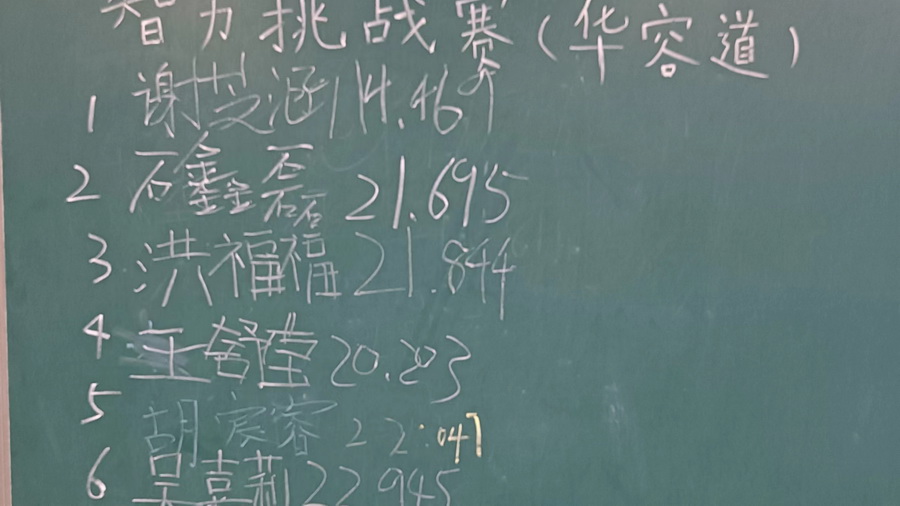 智力挑战赛（华容道）
1 谢艾涵 14.469
2 石鑫磊 21.695
3 洪福福 21.844
4 王舒莹 20.203
5 胡宸睿 22:047
6 吴喜莉 22.945